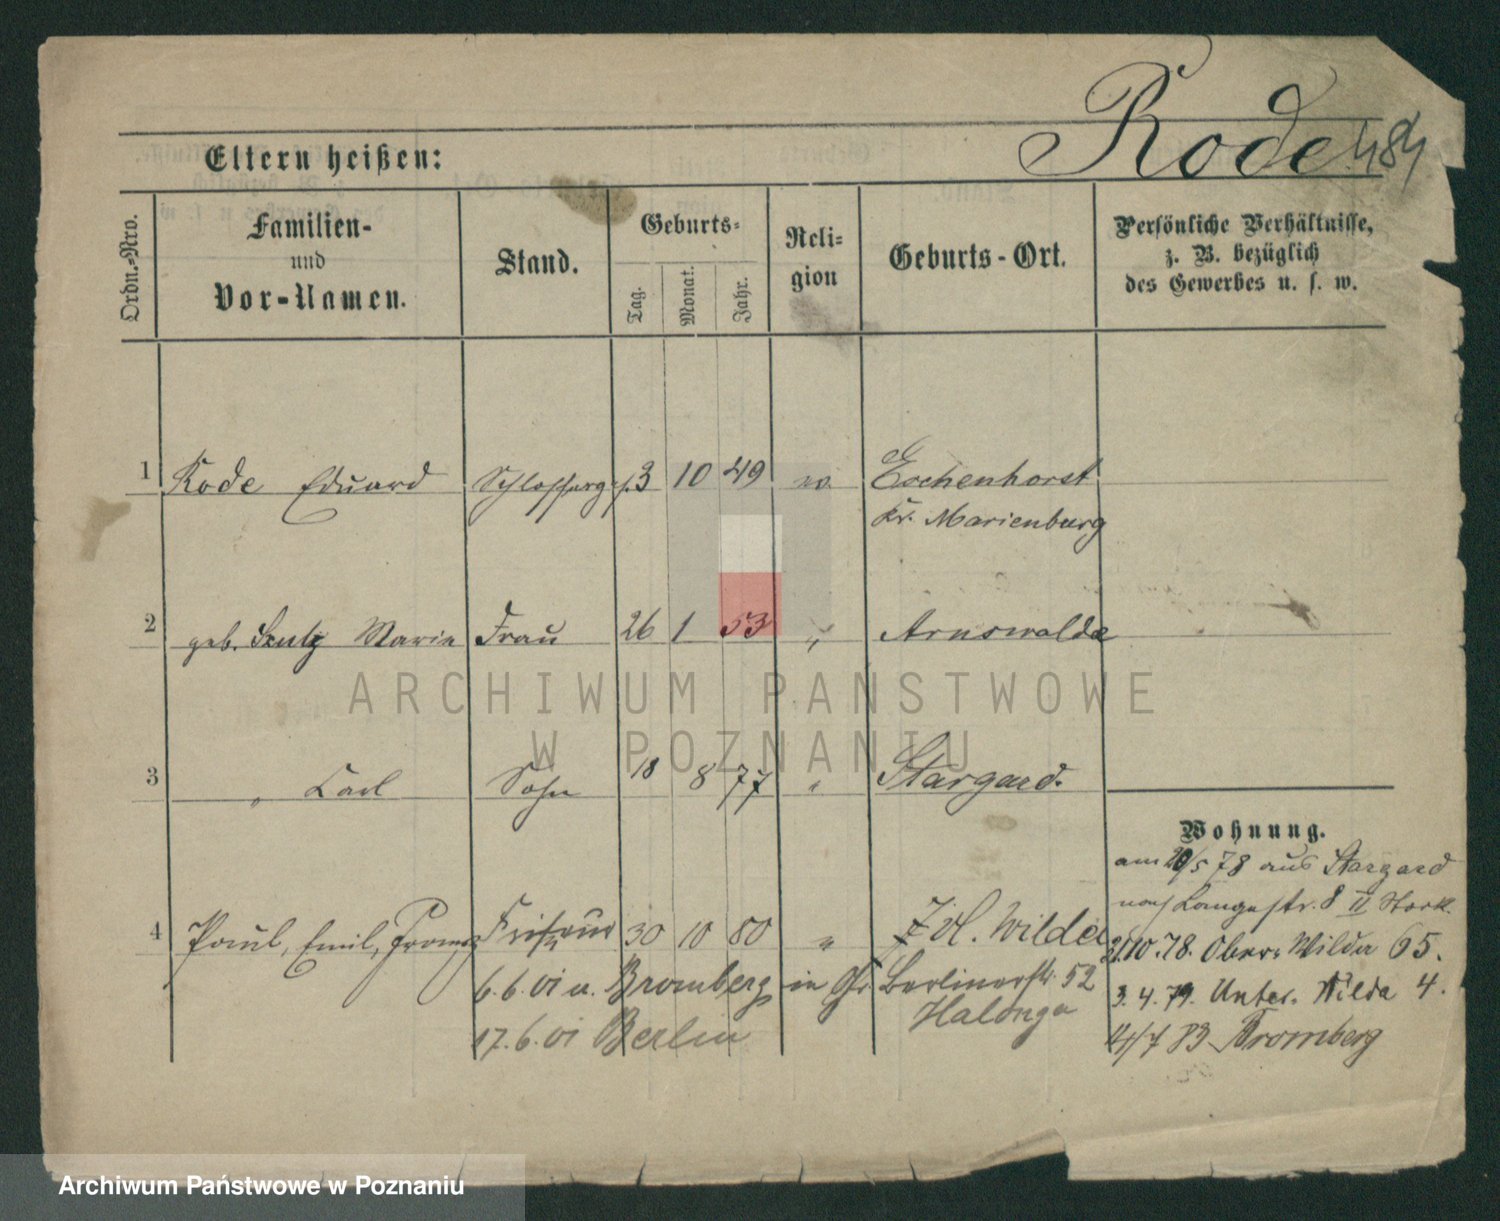 Rode 484
Eltern heißen:
Ordn.-Nro.
Familien-
und
Vor-Namen.
Stand.
Geburts-
Tag.
Monat.
Jahr.
Reli-
gion
Geburts-Ort.
Persönliche Verhältnisse,
z. B. bezüglich
des Gewerbes u. s. w.
1 Rode Eduard Schlosserges. 3 10 49 ev. Eschenhorst
Kr. Marienburg
2 geb. Marie Frau 26 1 53 " Arnswalde
ARCHIWUM PAŃSTWOWE
W POZNANIU
3 " Carl Sohn 18 8 77 " Stargard.
Wohnung.
am 20/5 78 aus Stargard
nach Langestr. 8 II
4 Paul, Emil, Franz Friseur 30 10 80 " Wilda
21.10.78. Ober Wilda 65.
6.6.01 n. Bromberg in Berlinerstr. 52
3.4.79. Unter Wilda 4.
17.6.01 Berlin
14/7 83 Bromberg
Archiwum Państwowe w Poznaniu